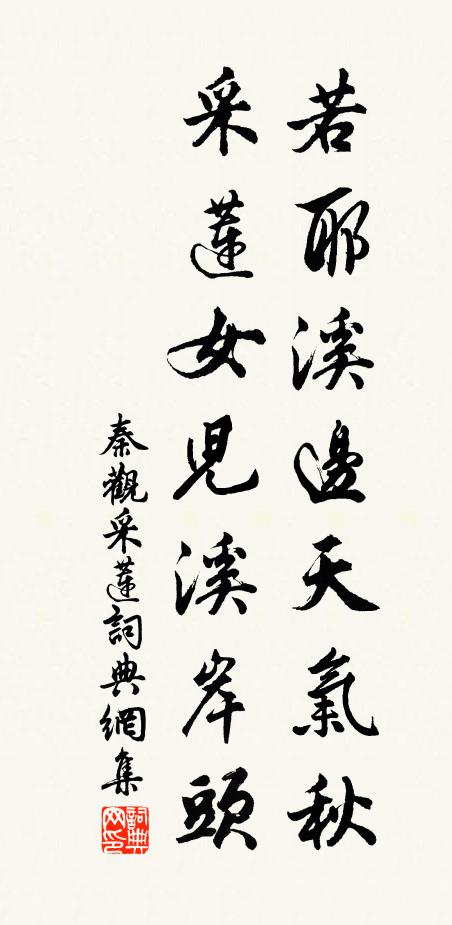 若耶溪邊天氣秋
采蓮女兒溪岸頭
秦觀采蓮詞典網集
詞典網印